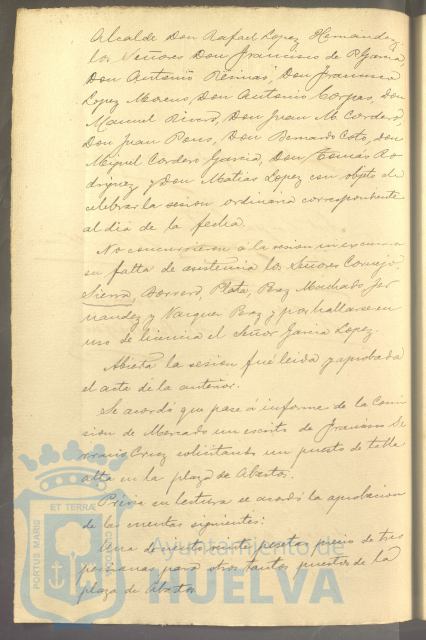 Alcalde Don Rafael Lopez Hernandez y
los Señores Don Francisco de P. Garcia,
Don Antonio Don Francisco
Lopez Moreno, Don Antonio Corpas, don
Manuel Rivero, Don Juan M. Cordero,
Don Juan Pons, Don Bernardo Coto, don
Miguel Cordero Garcia, Don Tomas Ro
driguez y Don Matias Lopez con objeto de
celebrar la sesion ordinaria correspondiente
al dia de la fecha.
No concurrieron á la sesion ni escusaron
su falta de asistencia los Señores Cornejo,
Sierra, Borrero, Plata, Paz Machado, Fer
nandez y Vazquez Paz y por hallarse en
uso de licencia el Señor Garcia Lopez.
Abierta la sesion fué leida y aprobada
el acta de la anterior.
Se acordó que pase á informe de la Comi
sion de Mercado un escrito de Francisco Se
rrano Cruz solicitando un puesto de tabla
alta en la plaza de Abastos.
Previa su lectura se acordó la aprobacion
de las cuentas siguientes:
Una de ciento veinte pesetas, precio de tres
persianas para otros tantos puestos de la
plaza de Abastos
PORTUS MARIS ET TERRAE CUSTODIA
Ayuntamiento de
HUELVA